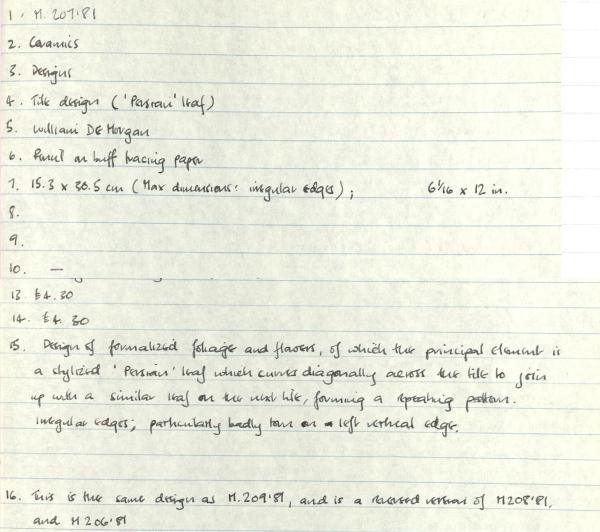 1. M.207'81
2. Ceramics
3. Designs
4. Tile design ('Persian' leaf)
5. William De Morgan
6. Pencil on buff tracing paper
7. 15.3 x 30.5 cm (Max dimensions: irregular edges); 6 1/16 x 12 in.
8.
9.
10. —
13. £4.30
14. £4.30
15. Design of formalized foliage and flowers, of which the principal element is
a stylized 'Persian' leaf which curves diagonally across the tile to join
up with a similar leaf on the next tile, forming a repeating pattern.
Irregular edges; particularly badly torn on left vertical edge.
16. This is the same design as M.209'81, and is a reversed version of M208'81,
and M206'81